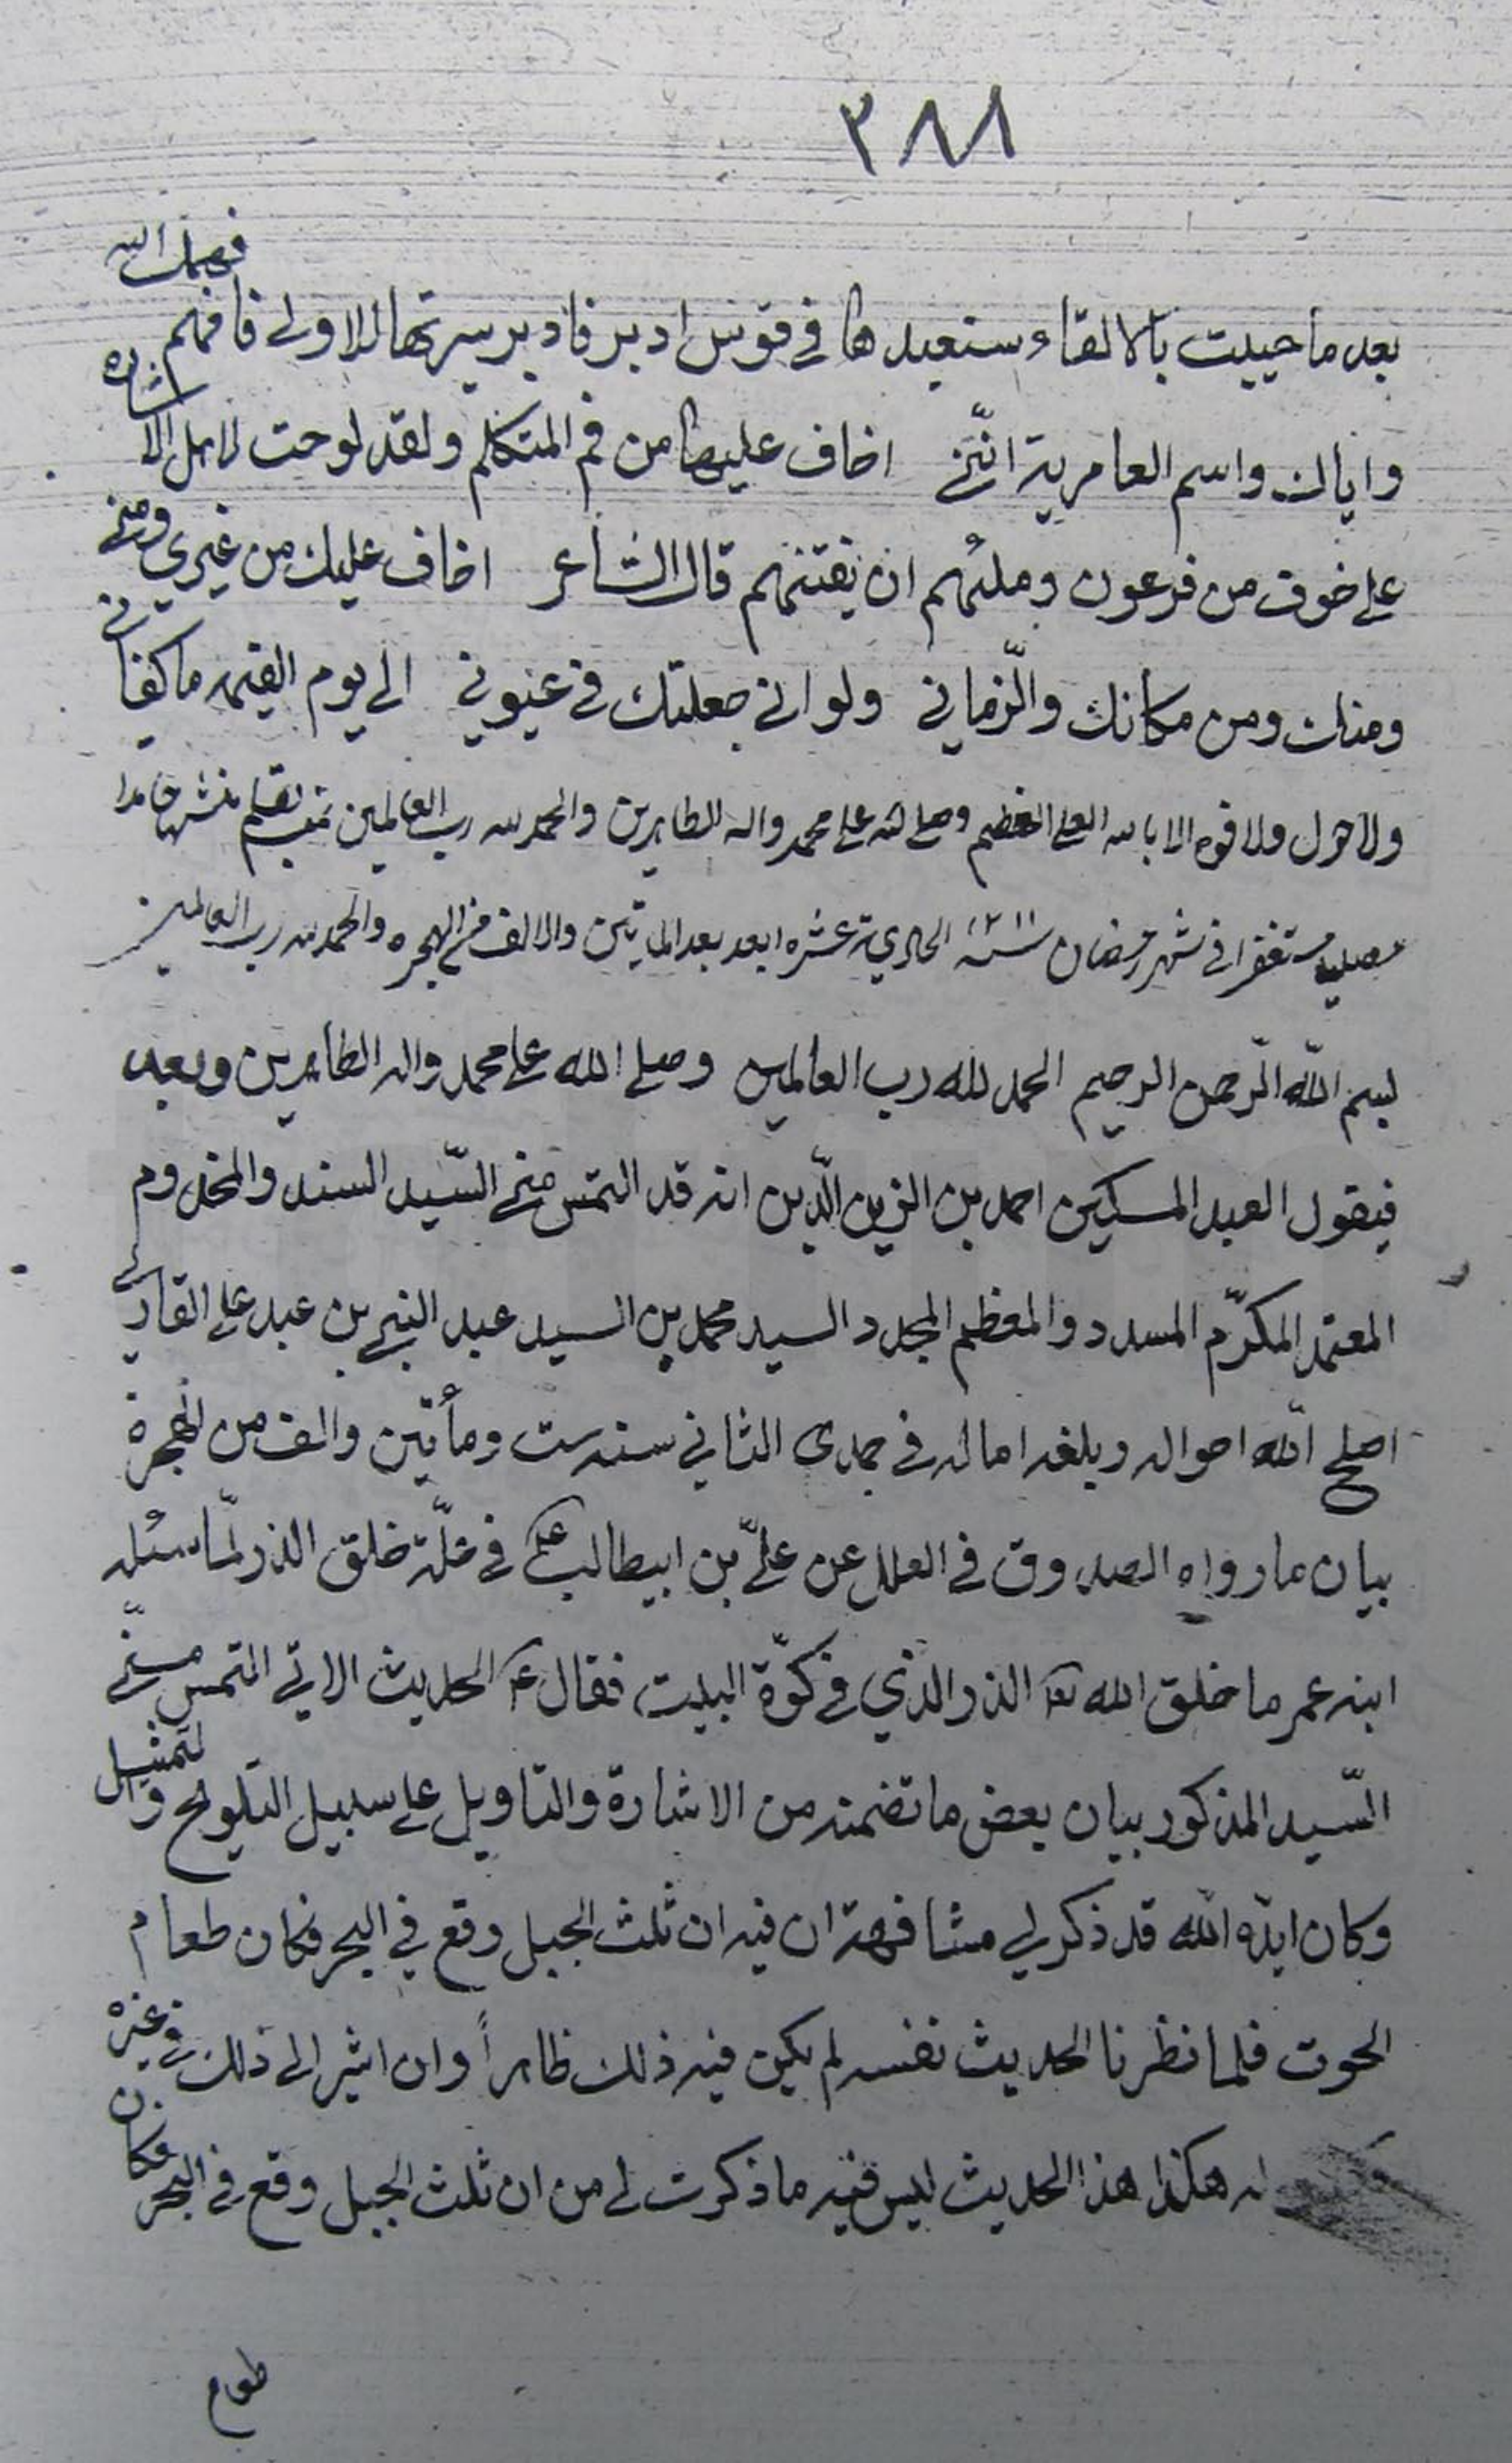 ٣٨٨
بعد ما حييت بالالقاء سنعيدها في قوس ادبر فادبر سيرتها الاولى فافهم فهمك الله
واياك واسم العامرية انّني اخاف عليها من فم المتكلم ولقد لوحت لاهل الاشاره
على خوف من فرعون وملئهم ان يفتنهم قال الشاعر اخاف عليك من غيري ومني
ومنك ومن مكانك والزّماني ولو اني جعلتك في عيوني الى يوم القيمه ما كفاني
ولا حول ولا قوه الا بالله العلي العظيم وصلى الله على محمد واله الطاهرين والحمد لله رب العالمين تمت بقلم منشئها حامدا
مصليا مستغفرا في شهر رمضان سنة ١٢١١ الحادية عشره بعد المأتين والالف من الهجره والحمد لله رب العالمين
بسم اللّه الرّحمن الرحيم الحمد لله رب العالمين وصلى الله على محمد واله الطاهرين وبعد
فيقول العبد المسكين احمد بن الزين الّدين انه قد التمس مني السّيد السند والمخدوم
المعتمد المكرّم المسدد والمعظم المجدد السيد محمد بن السيد عبد النبي بن عبد علي القاري
اصلح اللّه احواله وبلغه اماله في جمدى الثاني سنه ست ومأتين والف من الهجرة
بيان ما رواه الصدوق في العلل عن عليّ بن ابيطالب ع في علّة خلق الذر لمّا سئله
ابنه عمر ما خلق الله تعا الذر الذي في كوّة البيت فقال ع الحديث الاتي التمس منّي
السّيد المذكور بيان بعض ما تضمنه من الاشارة والتاويل على سبيل التلويح والتمثيل
وكان ايدّه اللّه قد ذكر لي مشافهة ان فيه ان ثلث الجبل وقع في البحر فكان طعام
الحوت فلما نظرنا الحديث نفسه لم يكن فيه ذلك ظاهراً وان اشير الى ذلك في غيره
له هكذا هذا الحديث ليس فيه ما ذكرت لي من ان ثلث الجبل وقع في البحر فكان
طعام